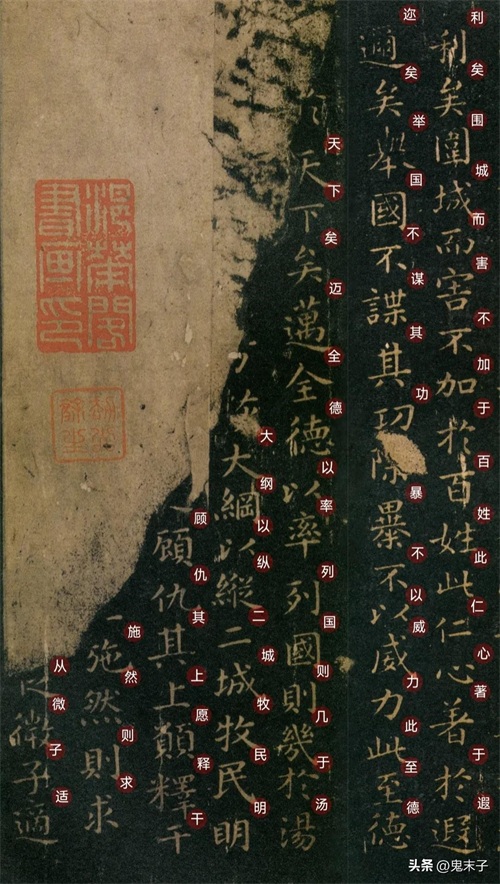 利矣圍城而害不加於百姓此仁心著於遐
利矣围城而害不加于百姓此仁心著于遐
邇矣舉國不謀其功除暴不以威力此至德
迩矣举国不谋其功暴不以威力此至德
天下矣邁全德以率列國則幾於湯
天下矣迈全德以率列国则几于汤
大綱以縱二城牧民明
大纲以纵二城牧民明
顧仇其上願釋干
顾仇其上愿释干
施然則求
施然则求
微子適
从微子适
头条 @鬼末子